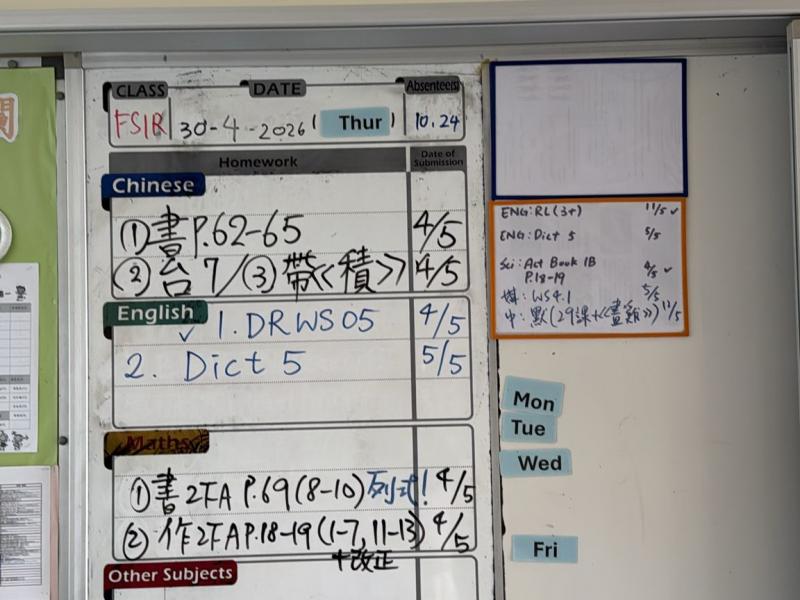 CLASS DATE Absentees
30-4-2026 (Thur) 10.24
Homework Date of Submission
Chinese
①書P.62-65 4/5
②台7/③帶《積》 4/5
English
✓ 1. DRWS05 4/5
2. Dict 5 5/5
Maths
①書2下A P.69(8-10)列式! 4/5
②作2下A P.18-19(1-7, 11-13) 4/5
+改正
Other Subjects
ENG: RL (3+) 11/5 ✓
ENG: Dict 5 5/5
Sci: Act Book 1B 4/5 ✓
P.18-19
WS 4.1 5/5
中: 默(29課+《畫雞》) 11/5
Mon
Tue
Wed
Fri